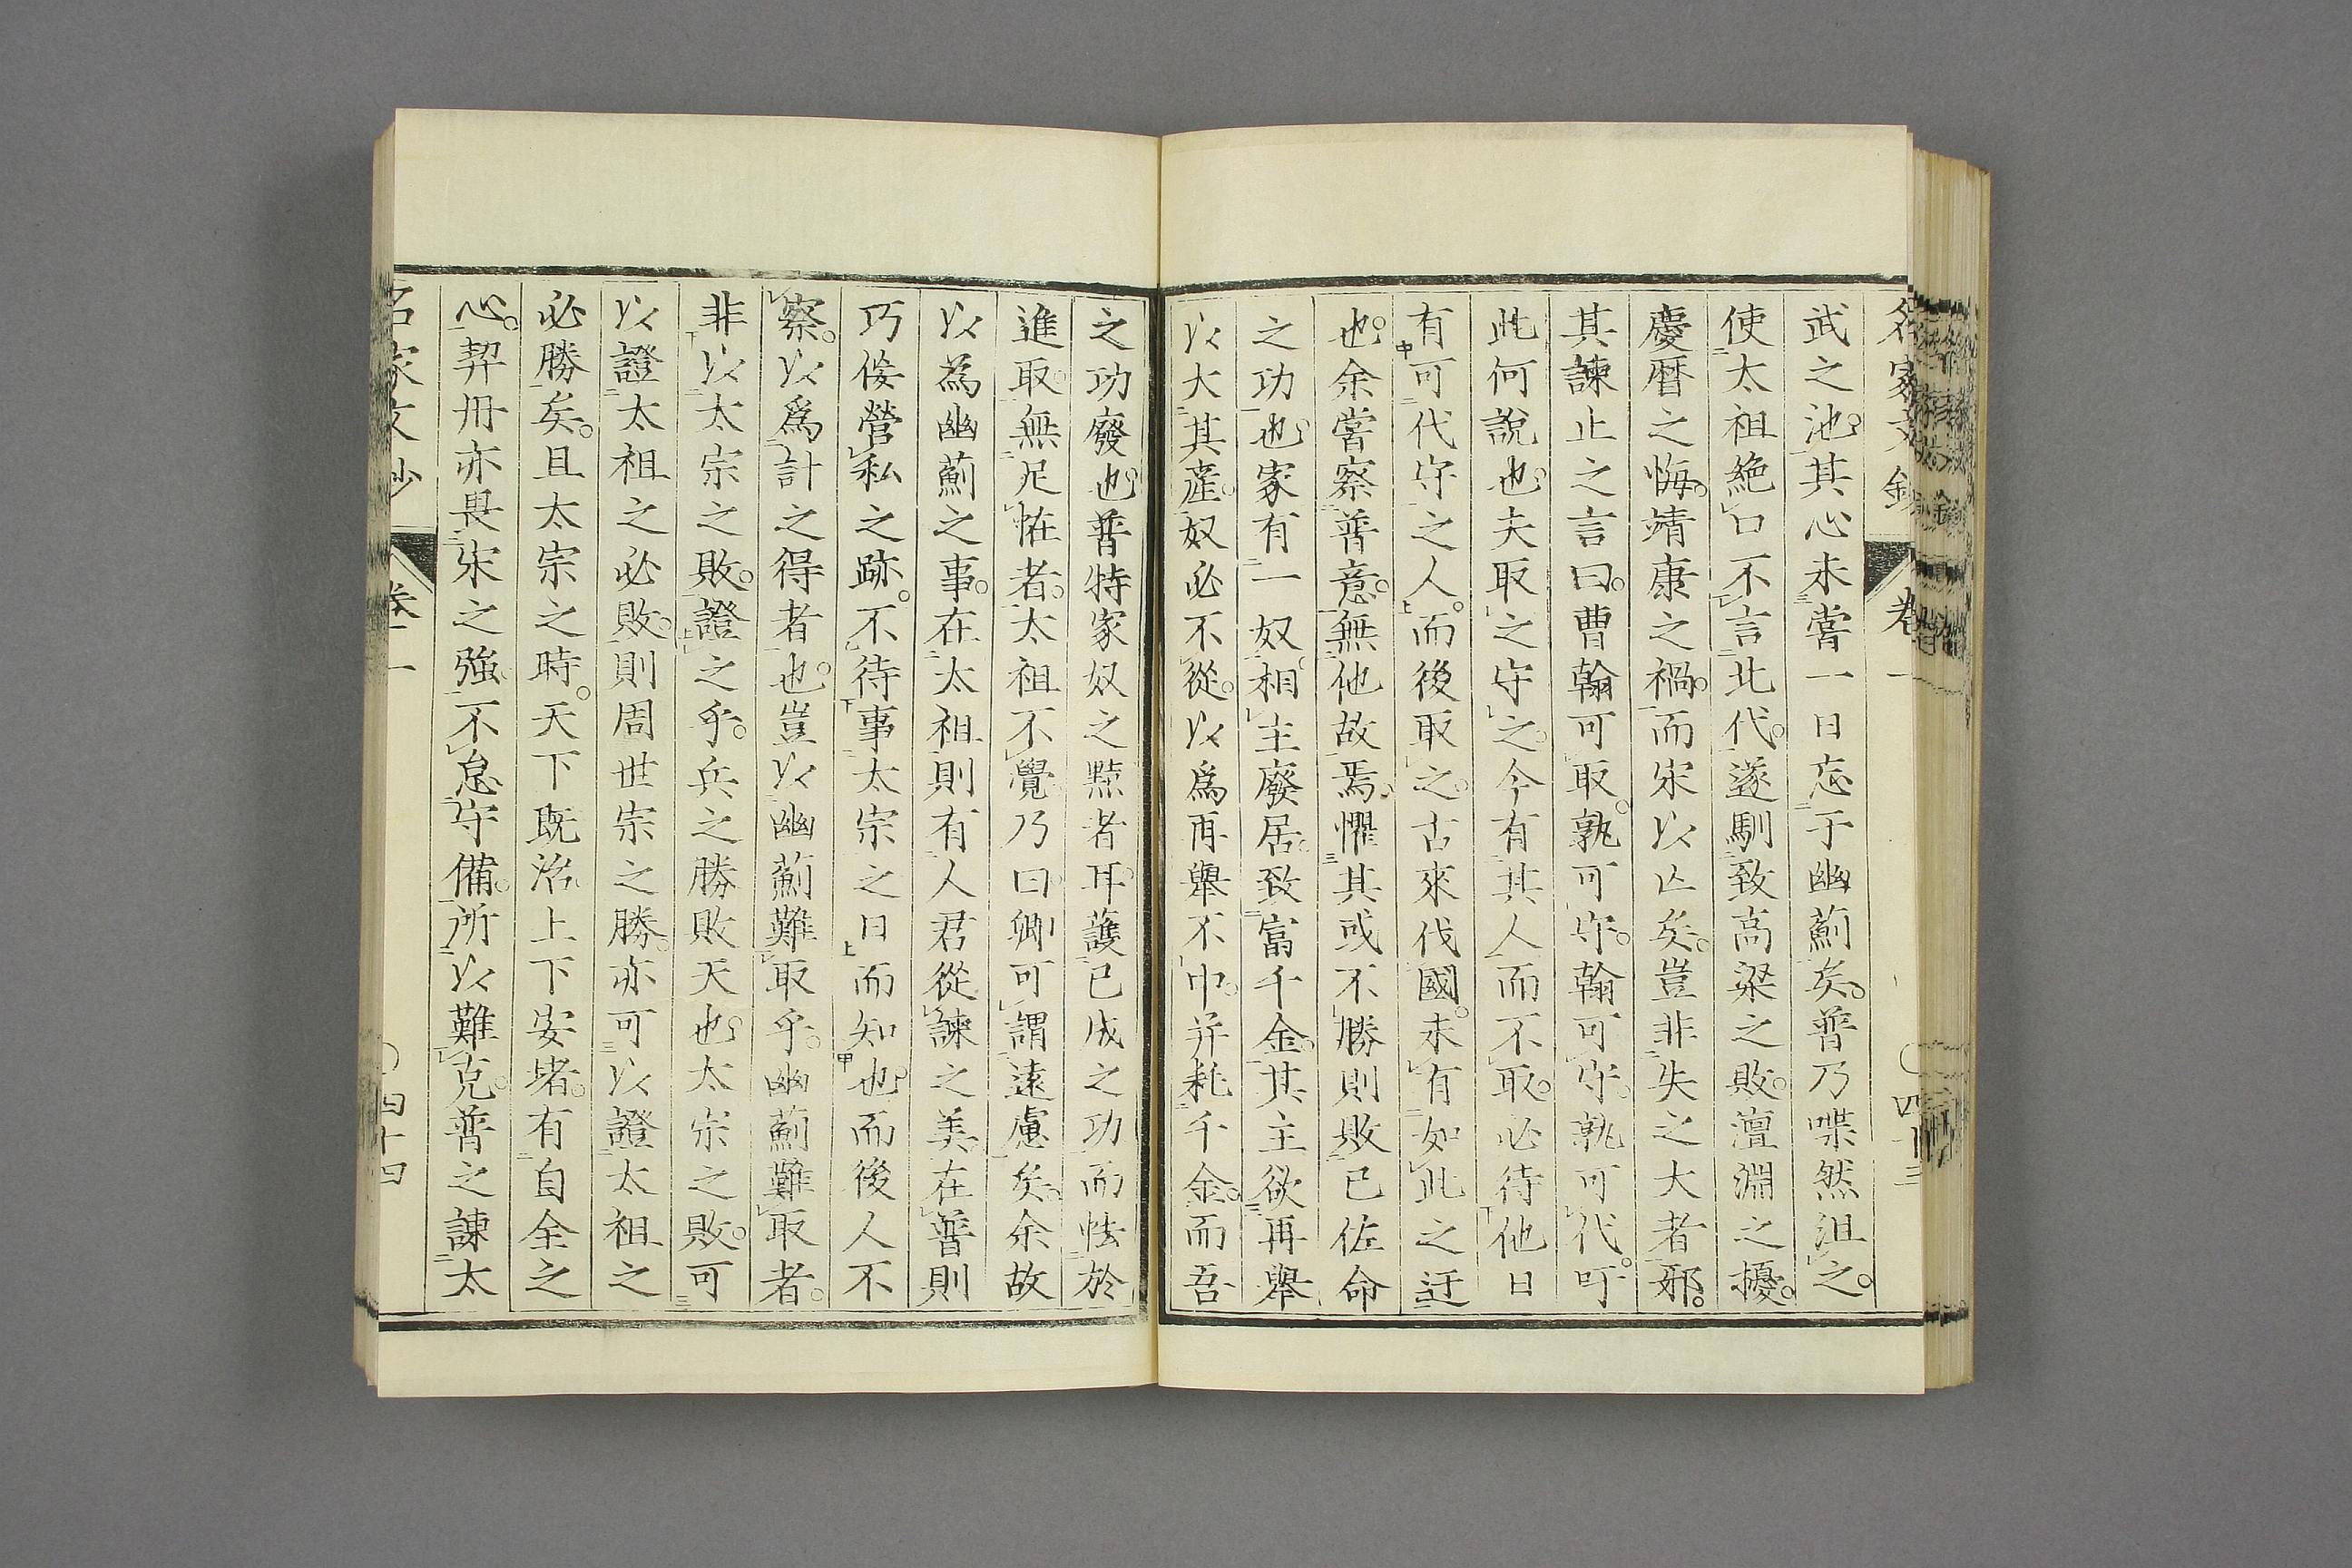 名家文鈔 卷一 四十三
武之池其心未嘗一日忘于幽薊矣普乃喋然沮之
使太祖絶口不言北伐遂馴致高梁之敗澶淵之擾
慶曆之悔靖康之禍而宋以亾矣豈非失之大者邪
其諫止之言曰曹翰可取孰可守翰可守孰可代吁
此何說也夫取之守之今有其人而不取必待他日
有可代守之人而後取之古來伐國未有如此之迂
也余嘗察普意無他故焉懼其或不勝則敗已佐命
之功也家有一奴相主廢居致富千金其主欲再舉
以大其產奴必不從以爲再舉不中并耗千金而吾
之功廢也普特家奴之黠者耳護已成之功而怯於
進取無足恠者太祖不覺乃曰卿可謂遠慮矣余故
以為幽薊之事在太祖則有人君從諫之美在普則
巧佞營私之跡不待事太宗之日而知也而後人不
察以爲計之得者也豈以幽薊難取乎幽薊難取者
非以太宗之敗證之乎兵之勝敗天也太宗之敗可
以證太祖之必敗則周世宗之勝亦可以證太祖之
必勝矣且太宗之時天下既治上下安堵有自全之
心契丹亦畏宋之強不怠守備所以難克普之諫太
名家文鈔 卷一 四十四